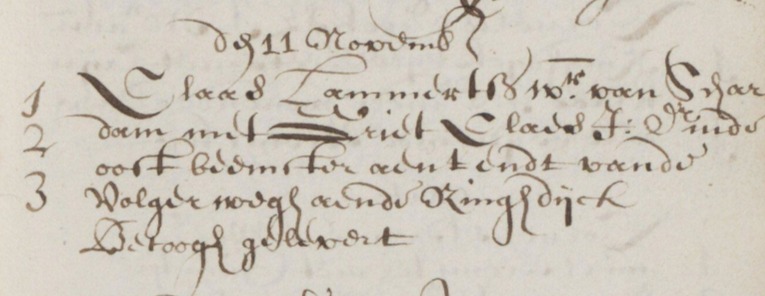 den 11 Novemb
1 Claas Lammertss wr. van Schar
2 dam met Griet Claes J: Dr inde
3 oost beemster aent endt vande
Volger wegh aende Ringhdijck
Betoogh gelevert